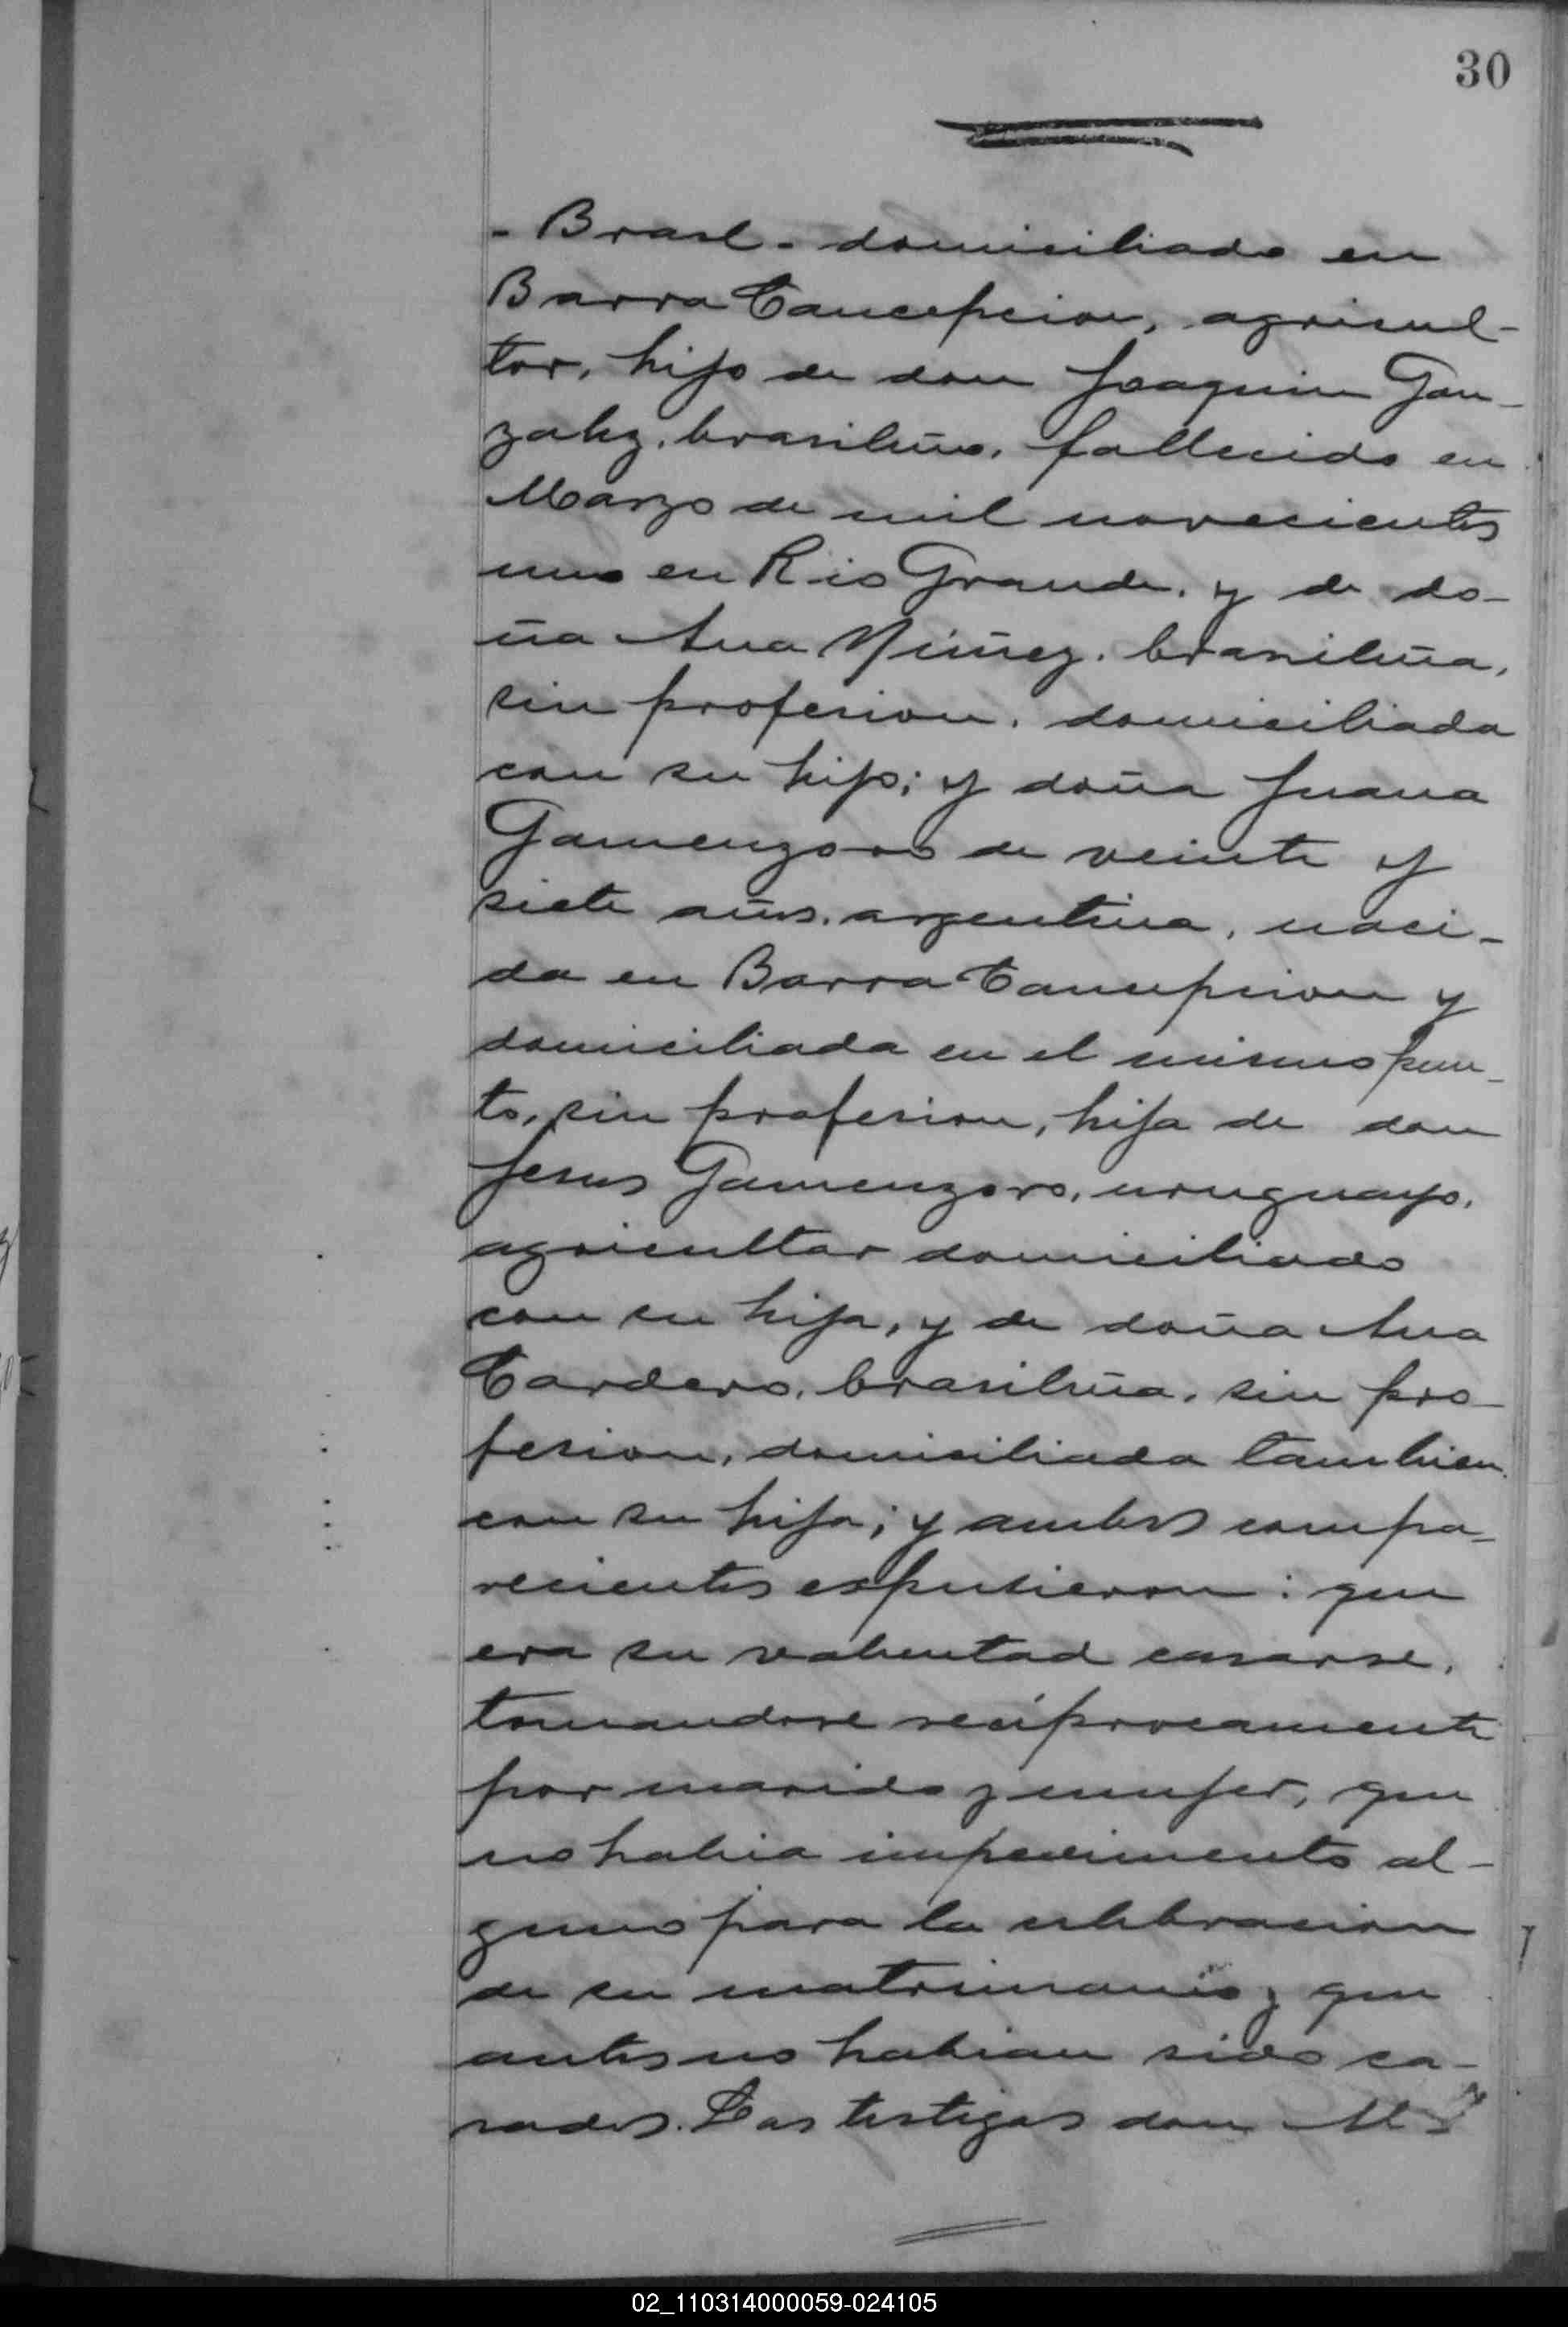 30
- Brasl - domiciliado en
Barra Concepcion, agricul-
tor, hijo de don Joaquin Gon-
zalez, brasileño, fallecido en
Marzo de mil novecientos
uno en Rio Grande, y de do-
ña Ana Núñez, brasileña,
sin profesion, domiciliada
con su hijo; y doña Juana
Gomenzoro de veinte y
siete años, argentina, naci-
da en Barra Concepcion y
domiciliada en el mismo pun-
to, sin profesion, hija de don
Jesus Gomenzoro, uruguayo,
agricultor domiciliado
con su hija, y de doña Ana
Cordero, brasileña, sin pro-
fesion, domiciliada tambien
con su hija; y ambos compa-
recientes espusieron: que
era su voluntad casarse,
tomandose recíprocamente
por marido y mujer, que
no habia impedimento al-
guno para la celebracion
de su matrimonio y que
antes no habian sido ca-
sados. Los testigos don
02_110314000059-024105